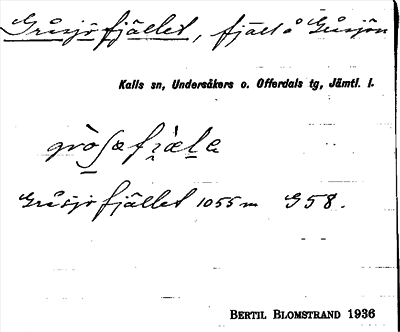 Gråsjöfjället, fjäll å Gåsjön
Kalls sn, Undersåkers o. Offerdals tg, Jämtl. l.
grò̱ʃæfi̯æ̀ḻa
Gråsjöfjället 1055 m G58.
BERTIL BLOMSTRAND 1936